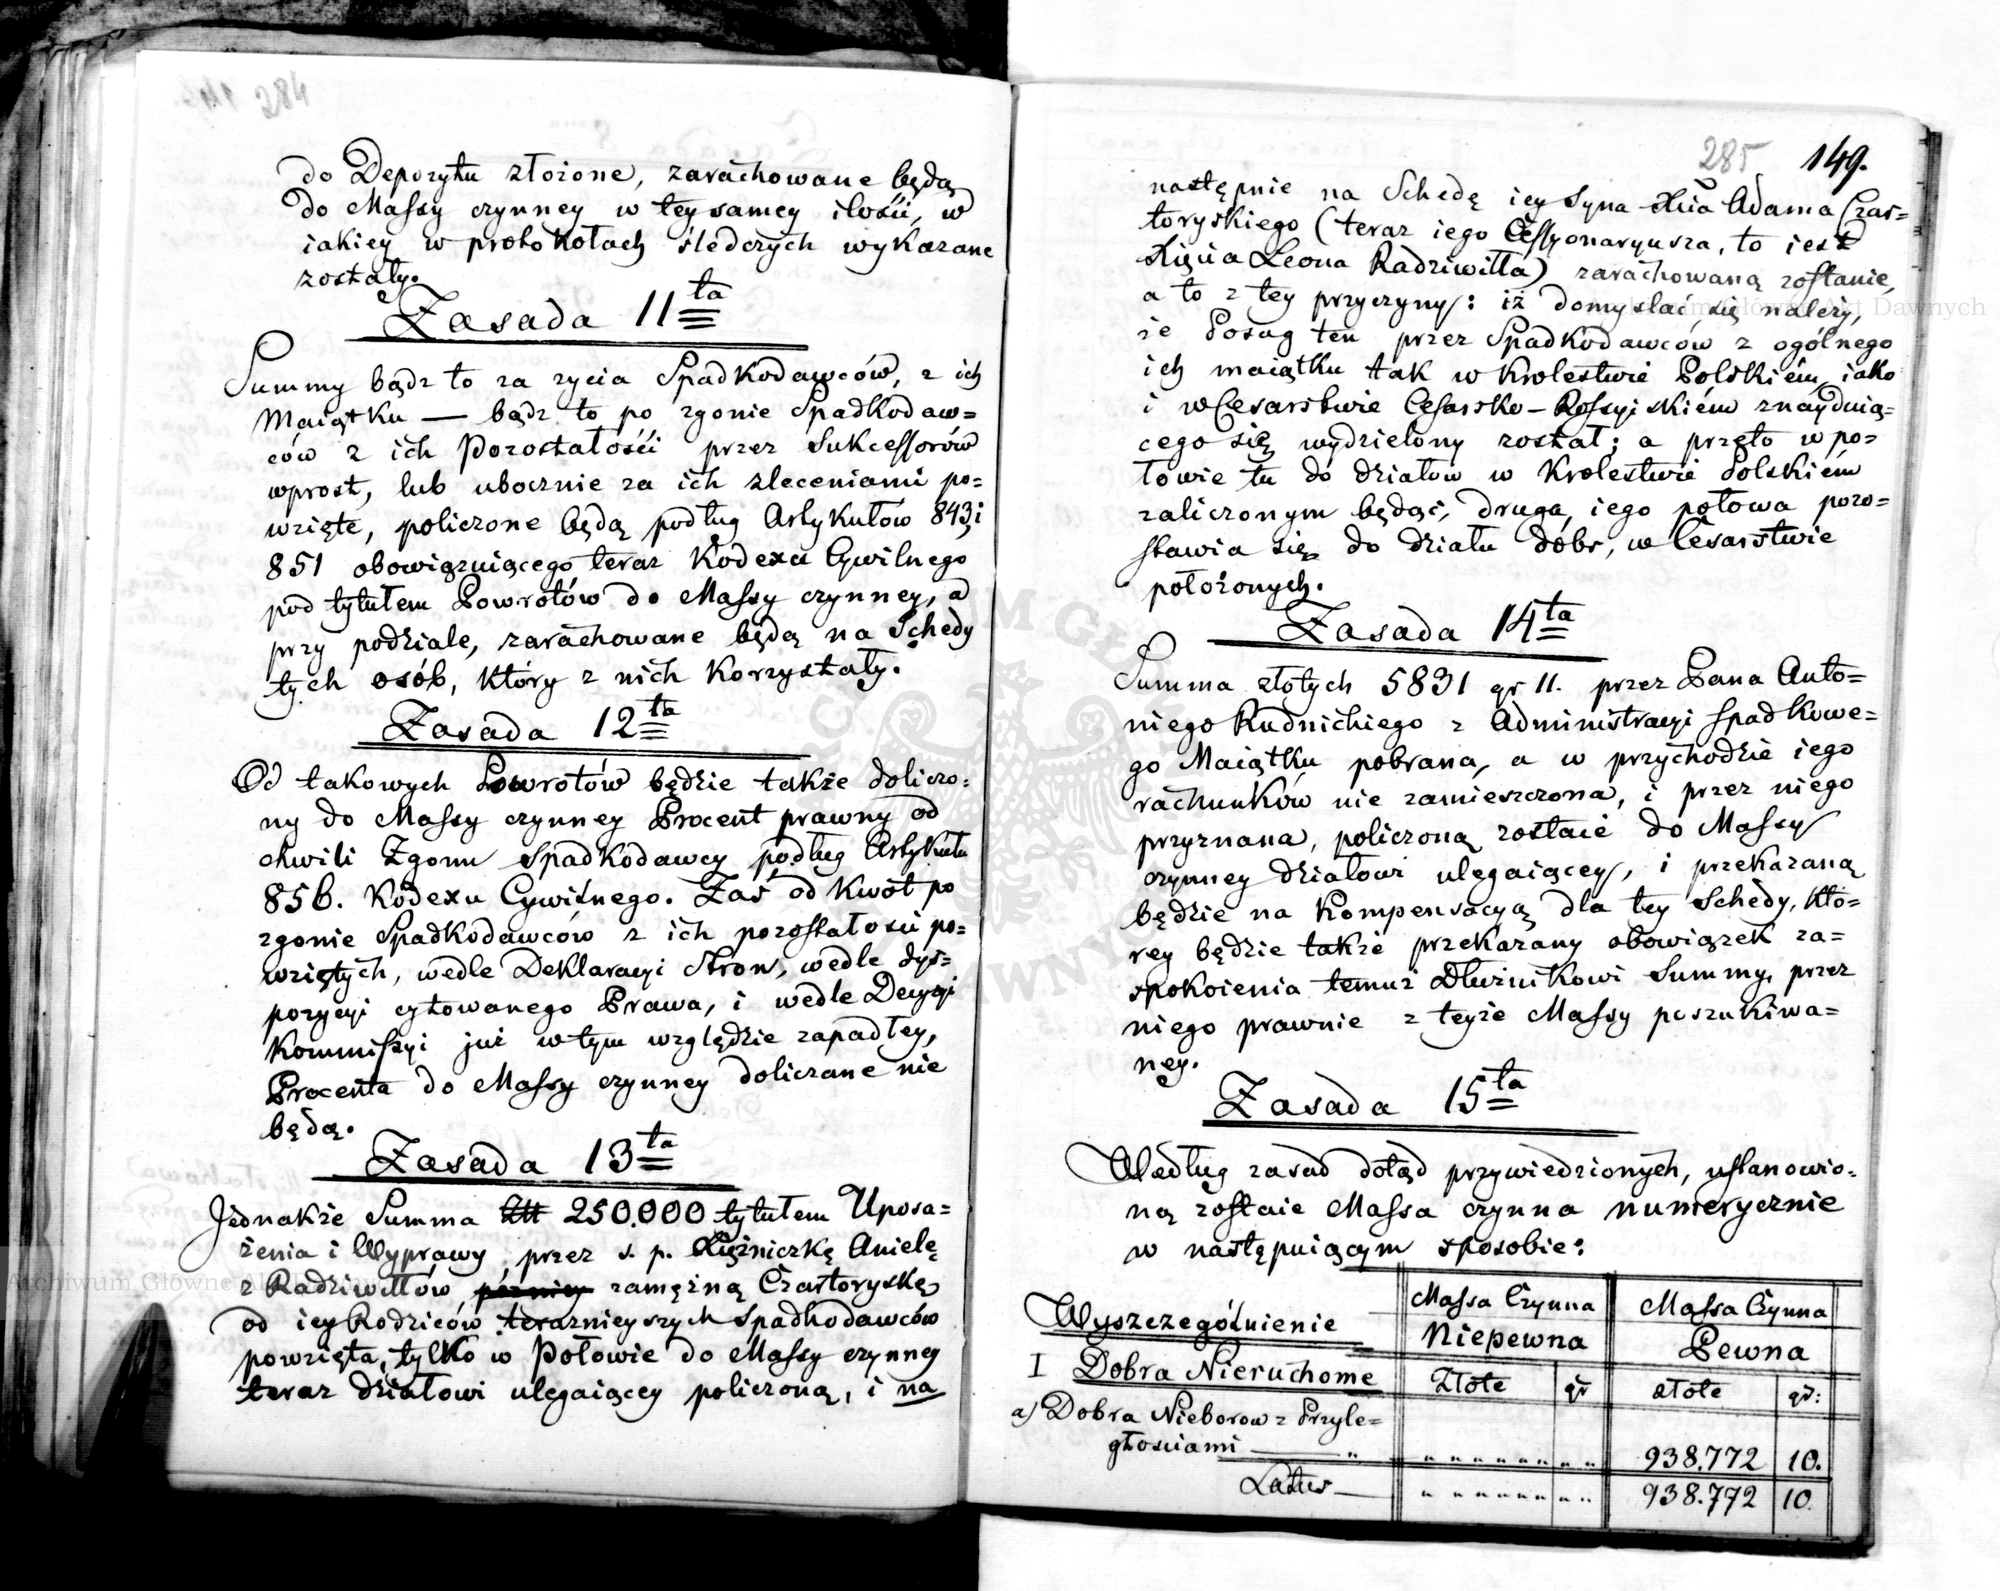 do Depozytu złożone, zarachowane będą
do Massy czynney w tey samey ilości, w
iakiey w protokołach śledczych wykazane
zostały.
Zasada 11ta
Summy bądz to za zycia Spadkodawców, z ich
Maiątku — bądz to po zgonie Spadkodaw=
ców z ich Pozostałości przez Sukcessorów
wprost, lub ubocznie za ich zleceniami po=
wzięte, policzone będą podług Artykułów 843 i
851 obowiązuiącego teraz Kodexu Cywilnego
pod tytułem Powrotów do Massy czynney, a
przy podziale, zarachowane będą na Schedy
tych osób, który z nich korzystały.
Zasada 12ta
Od takowych Powrotów będzie także doliczo=
ny do Massy czynney Procent prawny od
chwili Zgonu Spadkodawcy podług Artykułu
856. Kodexu Cywilnego. Zaś od kwot po
zgonie Spadkodawców z ich pozostałości po=
wziętych, wedle Deklaracyi Stron, wedle dys=
pozycyi cytowanego Prawa, i wedle Decyzyi
Kommissyi już w tym względzie zapadłey,
Procenta do Massy czynney doliczane nie
będą.
Zasada 13ta
Jednakże Summa Złł 250.000 tytułem Uposa=
żenia i Wyprawy, przez s. p. Xiężniczkę Anielę
z Radziwiłłów później zamężną Czartoryskę
od iey Rodziców terazniéyszych Spadkodawców
powzięta, tylko w Połowie do Massy czynney
teraz działowi ulegaiącey policzoną, i na
285 149.
następnie na Schedę iey Syna Xcia Adama Czar=
toryskiego (teraz iego Cessyonaryusza, to iest
Xięcia Leona Radziwiłła) zarachowaną zostanie,
a to z tey przyczyny: iż domyslać się należy,
że Posag ten przez Spadkodawców z ogólnego
ich maiątku tak w Krolestwie Polskiém iako
i w Cesarstwie Cesarsko-Rossyiskiém znayduią=
cego się wydzielony został; a przeto w po=
łowie tu do działów w Krolestwie Polskiém
zaliczonym będąc, druga iego połowa pozo=
stawia się do działu dóbr, w Cesarstwie
położonych.
Zasada 14ta
Summa złotych 5831 gr 11. przez Pana Anto=
niego Rudnickiego z Administracyi Spadkowe=
go Maiątku pobrana, a w przychodzie iego
rachunków nie zamieszczona, i przez niego
przyznana, policzoną zostaie do Massy
czynney działowi ulegaiącey, i przekazaną
będzie na kompensacyą dla tey Schedy, któ=
rey będzie także przekazany obowiązek za=
spokoienia temuż Dłużnikowi Summy, przez
niego prawnie z teyże Massy poszukiwa=
ney.
Zasada 15ta
Według zasad dotąd przywiedzionych, ustanowio=
ną zostaie Massa czynna numerycznie
w następuiącym sposobie:
Wyszczególnienie Massa Czynna Niepewna Massa Czynna Pewna
I Dobra Nieruchome Złote gr złote gr:
a) Dobra Nieborow z Przyle=
głosciami „ „ „ „ „ „ „ „ „ „ 938.772 10.
Latus „ „ „ „ „ „ „ „ „ 938.772 10
Archiwum Główne Akt Dawnych